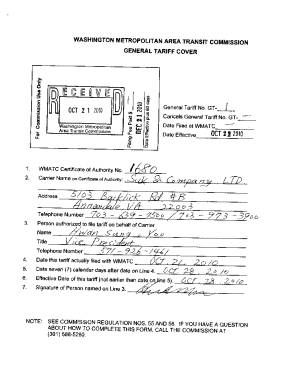 WASHINGTON METROPOLITAN AREA TRANSIT COMMISSION
GENERAL TARIFF COVER
For Commission Use Only
RECEIVED
OCT 21 2010
Washington Metropolitan
Area Transit Commission
Filing Fee Paid $
DEC 31 2010
General Tariff No. GT- 1
Cancels General Tariff No. GT-
Date Filed at WMATC
Date Effective OCT 28 2010
1. WMATC Certificate of Authority No. 1680
2. Carrier Name on Certificate of Authority: Suk B Company LTD
Address 5103 Backlick Rd #B
Annandale VA 22003
Telephone Number 703-639-9500 / 703-973-3900
3. Person authorized to file tariff on behalf of Carrier:
Name Hwan Sung, Yoo
Title Vice President
Telephone Number 571-926-1461
4. Date this tariff actually filed with WMATC OCT 21, 2010
5. Date seven (7) calendar days after date on Line 4. OCT 28. 2010
6. Effective Date of this tariff (not earlier than date on line 5) OCT 28 2010
7. Signature of Person named on Line 3.
NOTE: SEE COMMISSION REGULATION NOS. 55 AND 58. IF YOU HAVE A QUESTION
ABOUT HOW TO COMPLETE THIS FORM, CALL THE COMMISSION AT
(301) 588-5260.